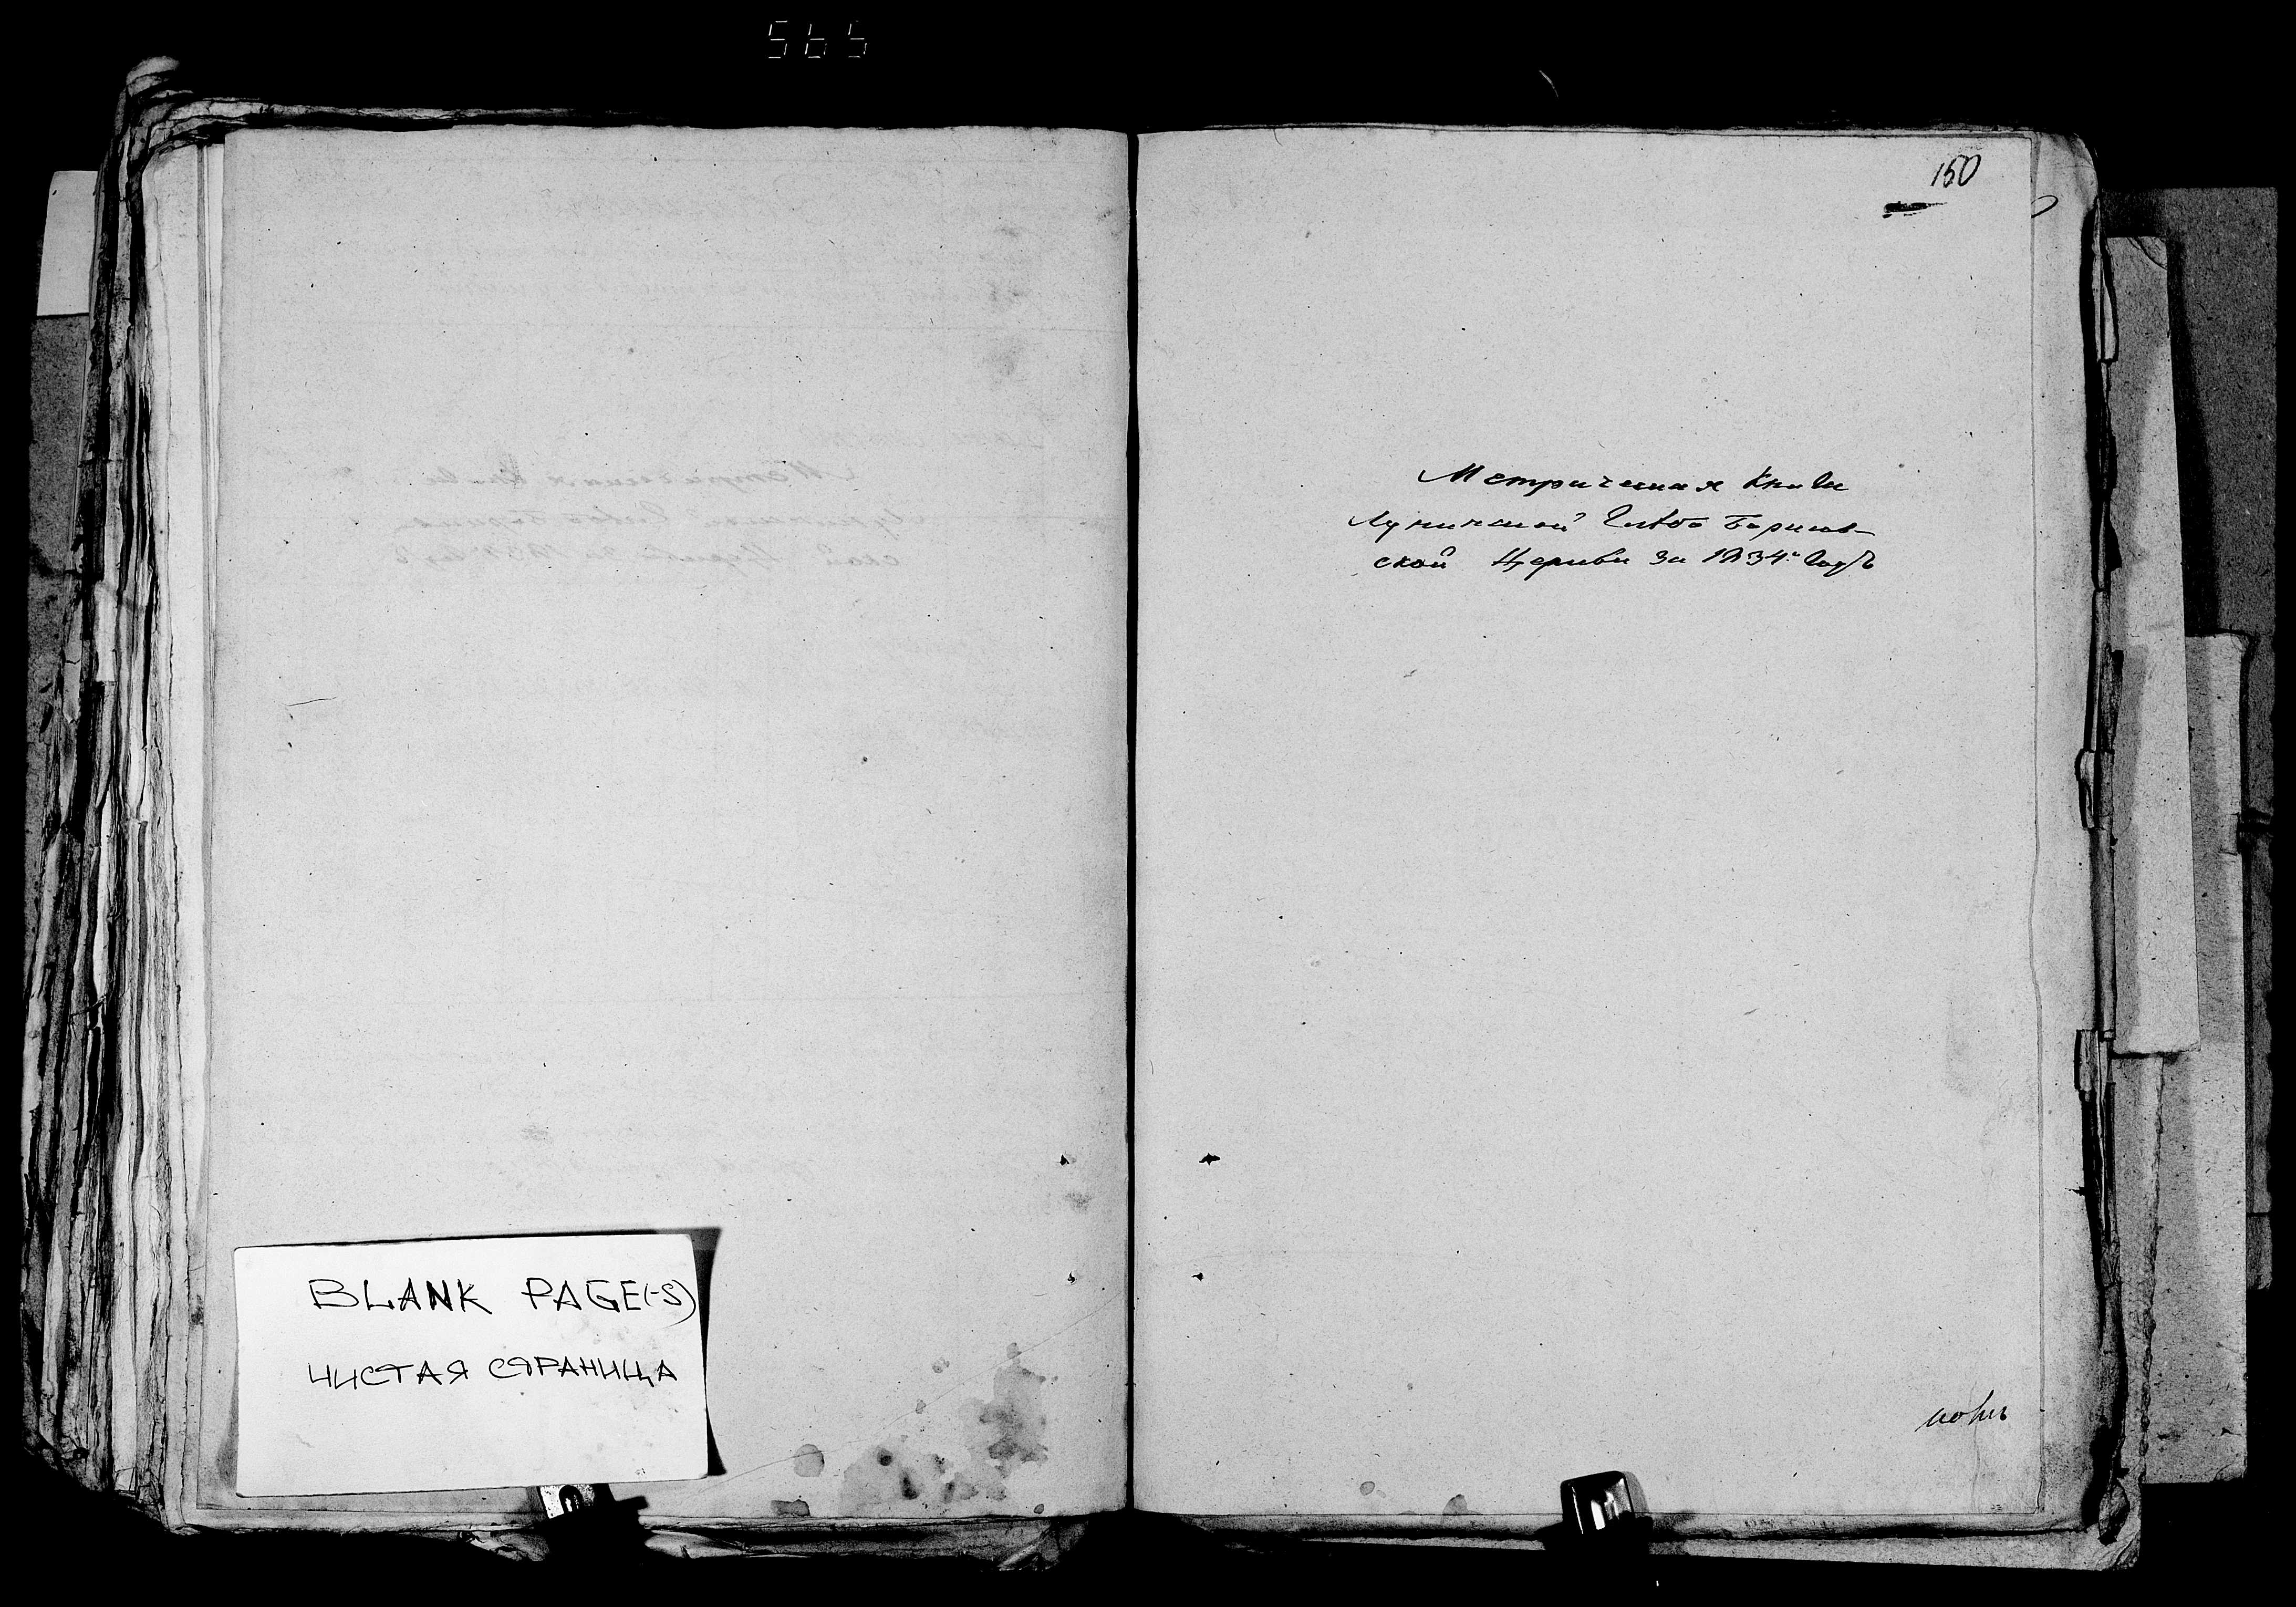 565
BLANK PAGE(-S)
ЧИСТАЯ СТРАНИЦА
150
Метрическая Книги
Лунинской Глебо Борисов-
ской Церкви за 1834й Годъ